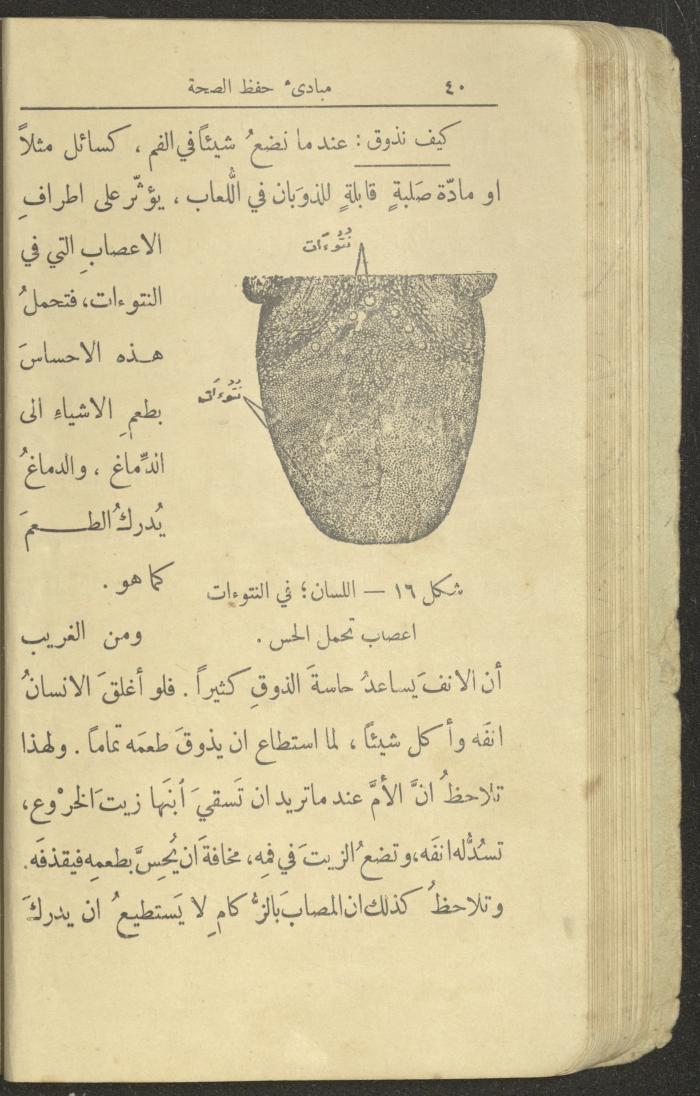 ٤٠ مبادىء حفظ الصحة
كيف نذوق : عند ما نضعُ شيئاً في الفم ، كسائل مثلاً
او مادّة صَلبةٍ قابلةٍ للذوَبان في اللُّعاب ، يؤثّر على اطرافِ
الاعصابِ التي في
النتوءات، فتحملُ
هـذه الاحساسَ
بطعمِ الاشياءِ الى
الدِّماغ ، والدماغُ
يُدركُ الطـــعمَ
كما هو .
نُتُوءَات
نُتُوءَات
شكل ١٦ — اللسان ؛ في النتوءات
اعصاب تحمل الحس .
ومن الغريب
أن الانفَ يَساعدُ حاسةَ الذوقِ كثيراً . فلو أغلقَ الانسانُ
انفَه وأكل شيئاً ، لما استطاع ان يذوقَ طعمَه تماماً . ولهذا
تلاحظُ انَّ الأمَّ عند ما تريد ان تَسقيَ ٱبنَها زيتَ الخروْع ،
تسُدُّ له انفَه، وتضعُ الزيتَ في فمِه، مخافةَ ان يُحِسَّ بطعمِه فيقذفَه.
وتلاحظُ كذلك ان المصابَ بالزُّكامِ لا يَستطيعُ ان يدركَ